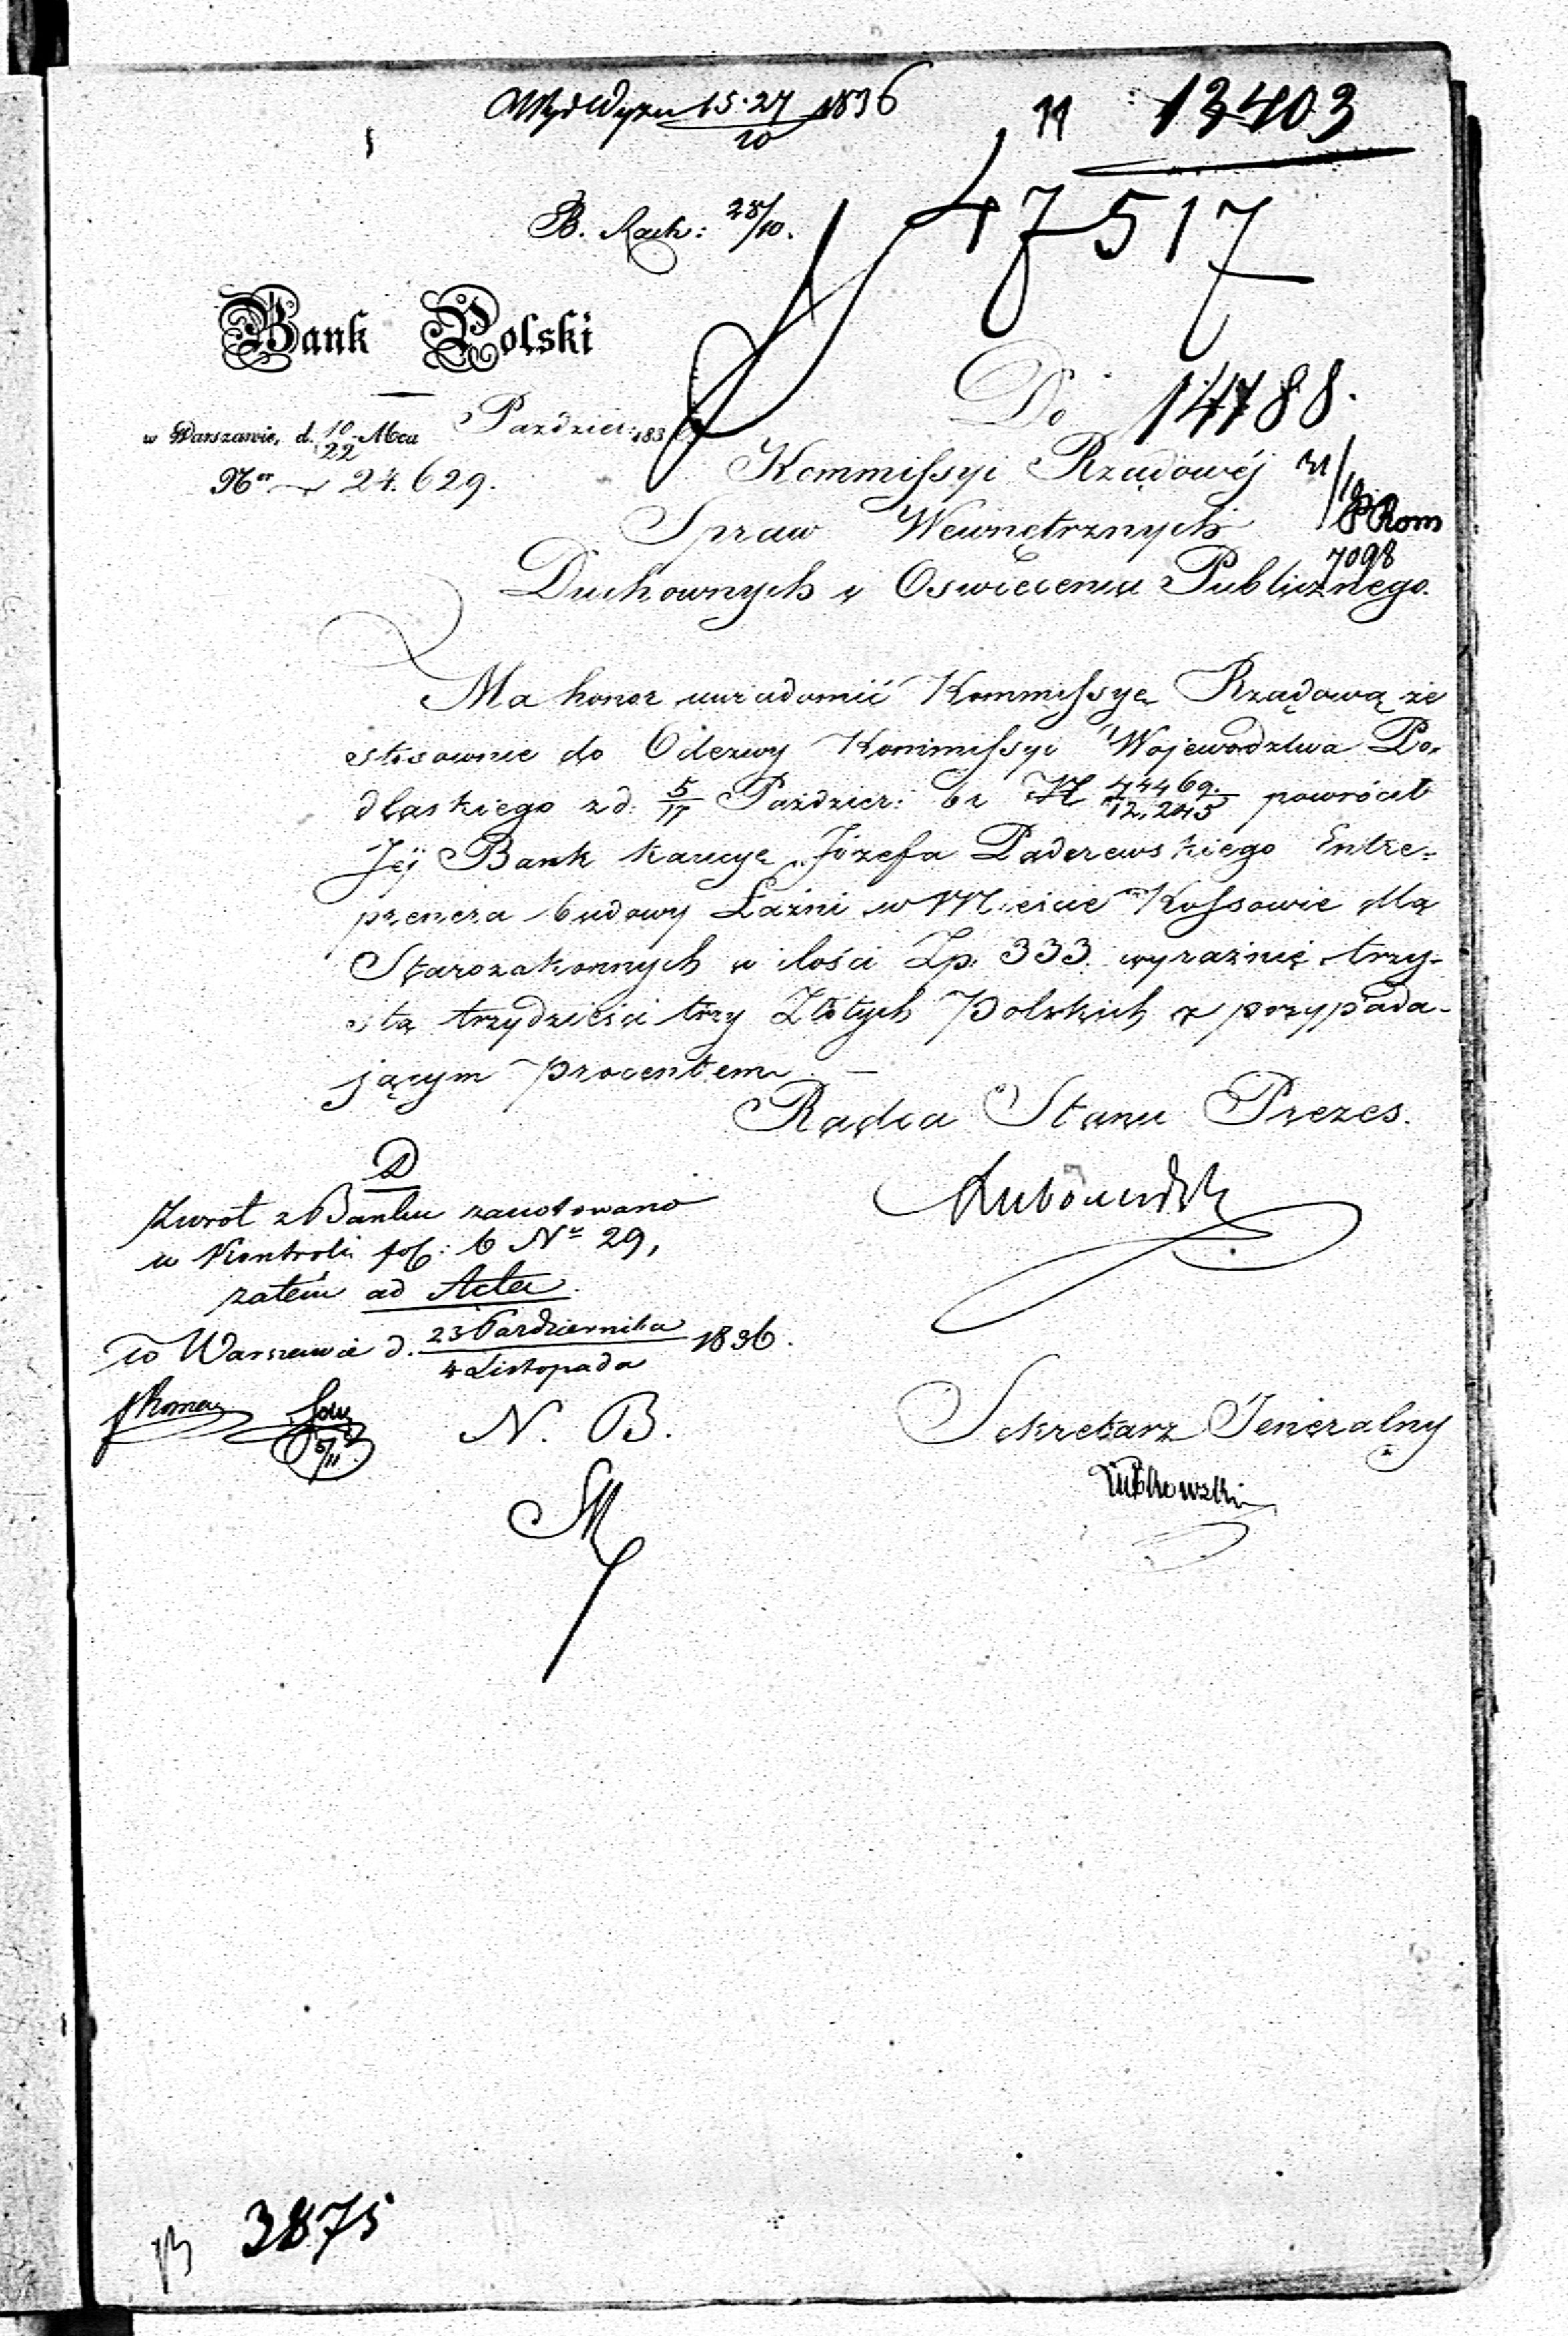 15.27/10 1836
11 13403
B. Rach: 28/10.
47517
Bank Polski
Do 14788.
w Warszawie, d. 10/22 Mca Paździer: 1836
Ner 24.629.
Kommissyi Rządowéj
Spraw Wewnętrznych
7098
Duchownych i Oswiecenia Publicznego.
Ma honor uwiadomić Kommissyę Rządową że
stosownie do Odezwy Kommissyi Województwa Po-
dlaskiego z d. 5/17 Paździer: br N 74469./12,245 powrócił
Jéj Bank kaucyę Józefa Paderewskiego Entre-
prenera budowy Łaźni w Mieście Kossowie dla
Starozakonnych w ilości Zp. 333. wyraźnie trzy-
sta trzydzieści trzy Złotych Polskich z przypada-
jącym procentem. —
Radca Stanu Prezes.
Lubowidzki
D
Zwrot z Banku zanotowano
w Kontroli fol: 6 No 29,
zatém ad Acta.
w Warszawie d. 23 Października/4 Listopada 1836.
N. B.
Sekretarz Jeneralny
Lubkowski
3875